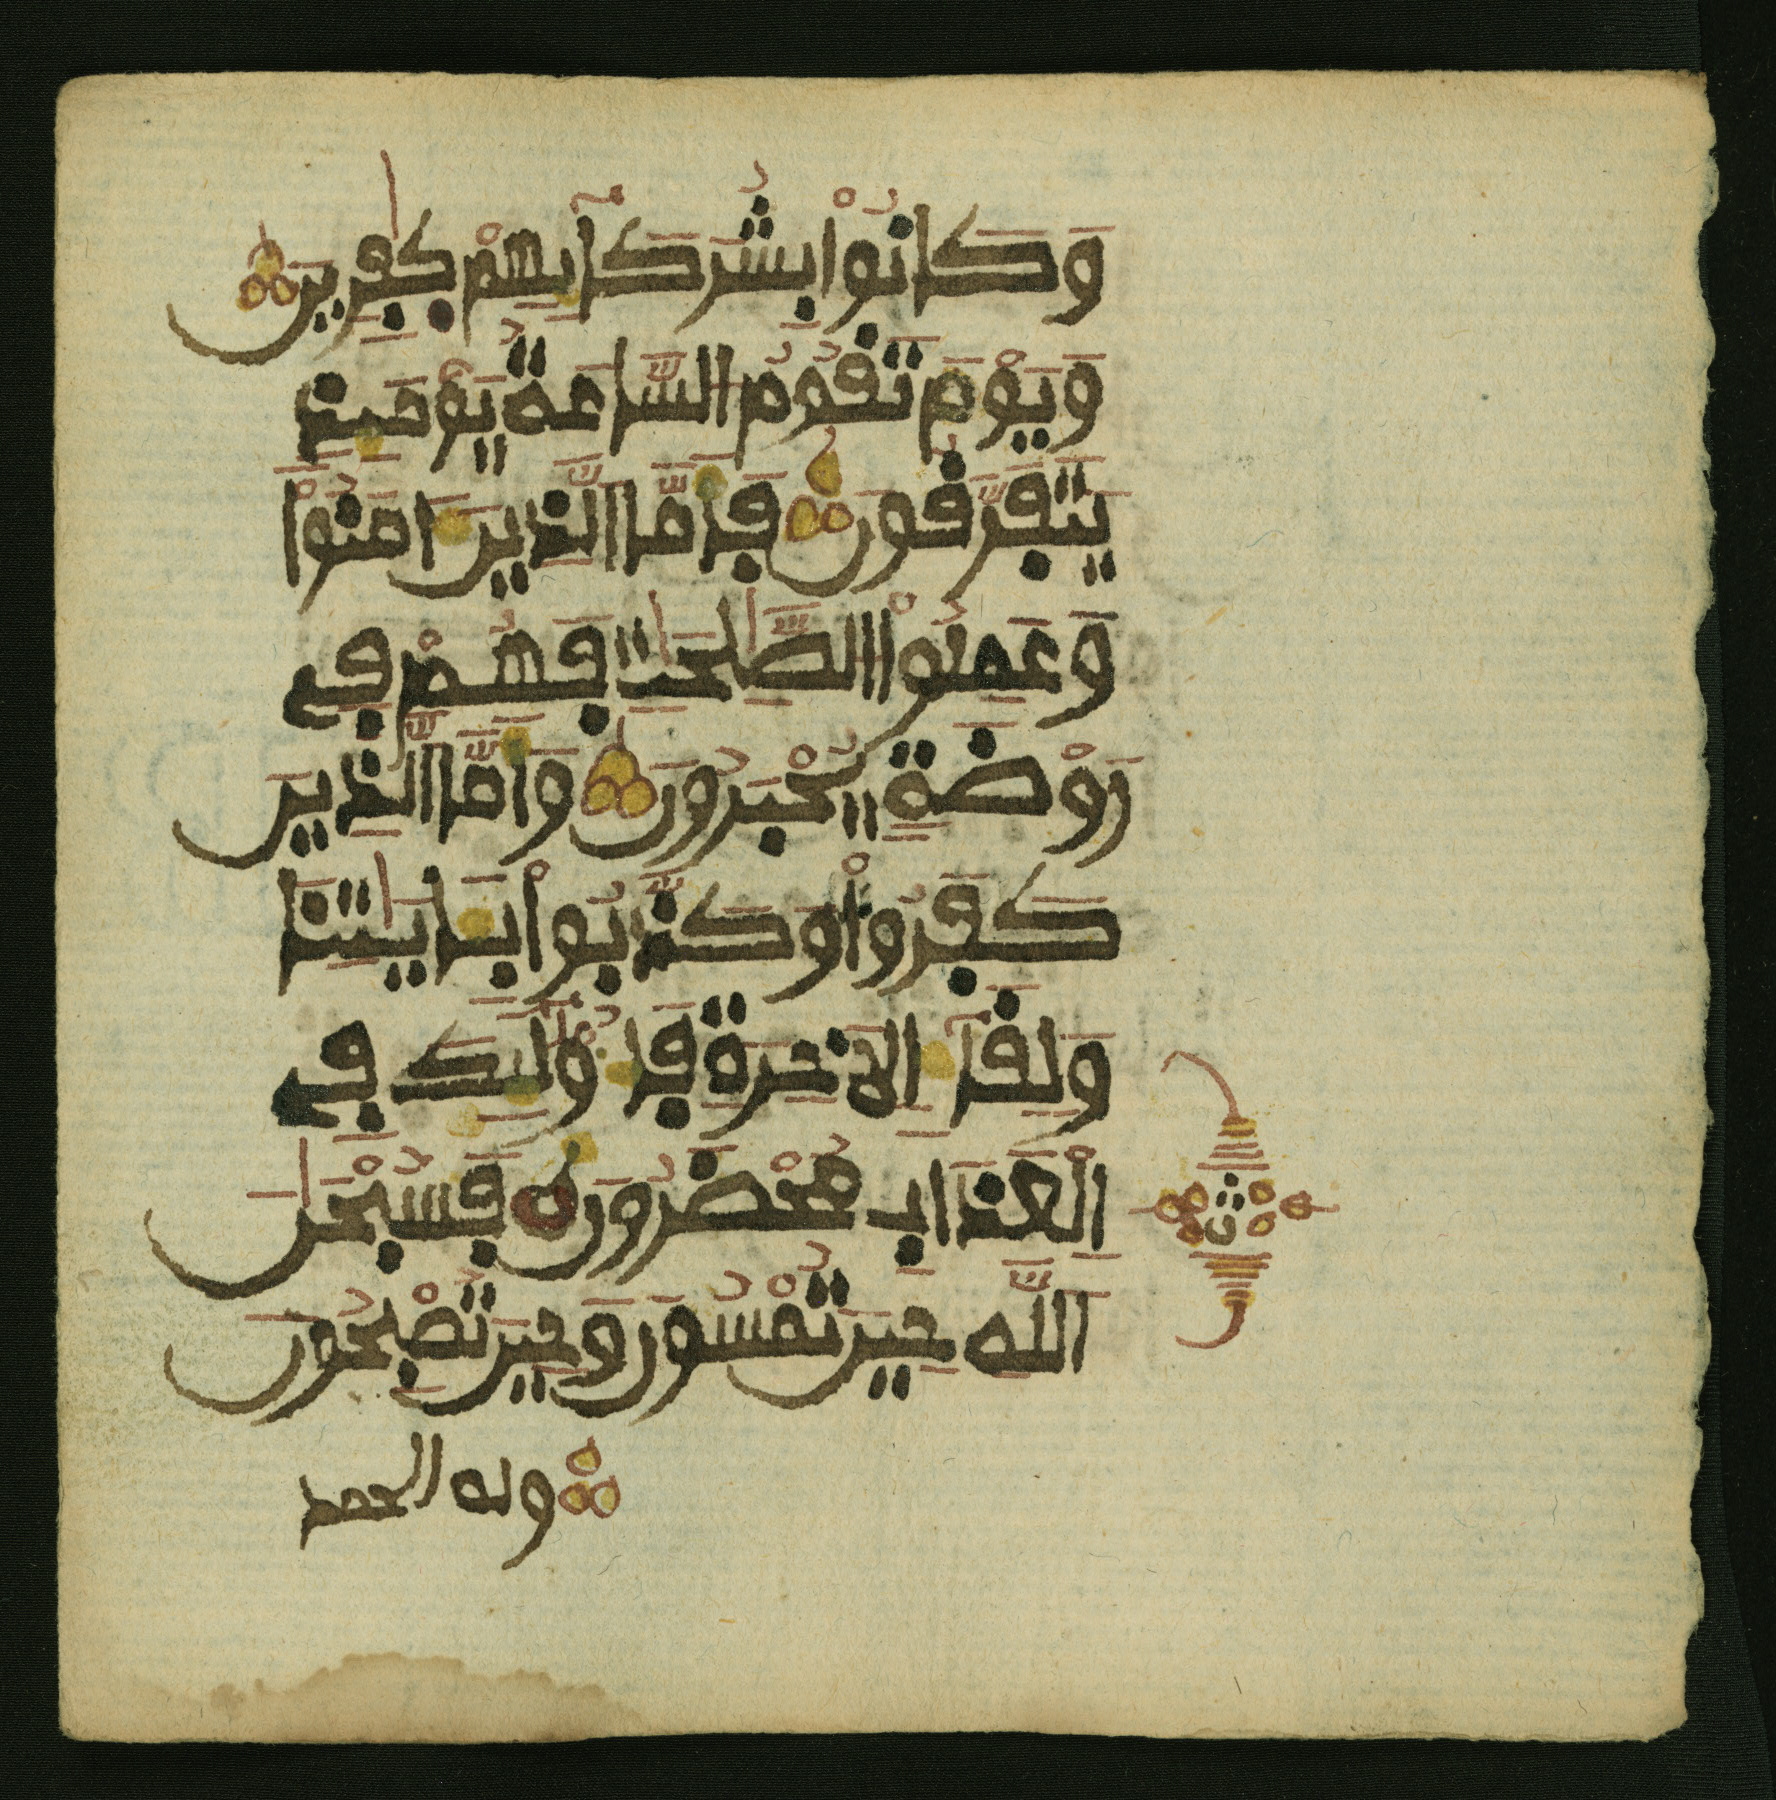 وَكَانُوْا بِشُرَكَآيِهِمْ كٰفِرِينَ
وَيَوْمَ تَقُومُ السَّاعَةُ يَوْمَئِذٍ
يَتَفَرَّقُونَ فَأَمَّا الَّذِينَ ءَامَنُواْ
وَعَمِلُواْ الصَّٰلِحَٰتِ فَهُمْ فِي
رَوْضَةٍ يُحْبَرُونَ وَأَمَّا الَّذِينَ
كَفَرُواْ وَكَذَّبُواْ بِـَٔايَٰتِنَا
وَلِقَآءِ الَاخِرَةِ فَأُوْلَٰٓئِكَ فِي
اِلْعَذَابِ مُحْضَرُونَ فَسُبْحَٰنَ
اَللَّهِ حِينَ تُمْسُونَ وَحِينَ تُصْبِحُونَ
وله الحمد
ث